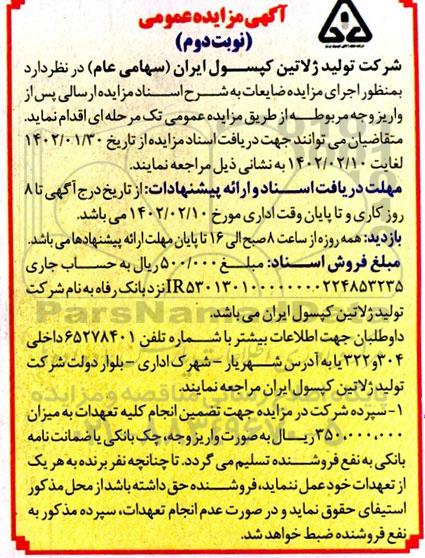 آگهی مزایده عمومی
(نوبت دوم)
شرکت تولید ژلاتین کپسول ایران (سهامی عام) در نظر دارد
بمنظور اجرای مزایده ضایعات به شرح اسناد مزایده ارسالی پس از
واریز وجه مربوطه از طریق مزایده عمومی تک مرحله ای اقدام نماید.
متقاضیان می توانند جهت دریافت اسناد مزایده از تاریخ ۱۴۰۲/۰۱/۳۰
لغایت ۱۴۰۲/۰۲/۱۰ به نشانی ذیل مراجعه نمایند.
مهلت دریافت اسناد و ارائه پیشنهادات: از تاریخ درج آگهی تا ۸
روز کاری و تا پایان وقت اداری مورخ ۱۴۰۲/۰۲/۱۰ می باشد.
بازدید: همه روزه از ساعت ۸ صبح الی ۱۶ تا پایان مهلت ارائه پیشنهادها می باشد.
مبلغ فروش اسناد: مبلغ ۵۰۰/۰۰۰ ریال به حساب جاری
IR۵۳۰۱۳۰۱۰۰۰۰۰۰۰۰۲۲۴۸۵۳۲۳۵ نزد بانک رفاه به نام شرکت
تولید ژلاتین کپسول ایران می باشد.
داوطلبان جهت اطلاعات بیشتر با شماره تلفن ۶۵۲۷۸۴۰۱ داخلی
۳۰۴ و ۳۲۲ یا به آدرس شهریار - شهرک اداری - بلوار دولت شرکت
تولید ژلاتین کپسول ایران مراجعه نمایند.
۱- سپرده شرکت در مزایده جهت تضمین انجام کلیه تعهدات به میزان
۳۵۰,۰۰۰,۰۰۰ ریال به صورت واریز وجه، چک بانکی یا ضمانت نامه
بانکی به نفع فروشنده تسلیم می گردد. تا چنانچه نفر برنده به هر یک
از تعهدات خود عمل ننماید، فروشنده حق داشته باشد از محل مذکور
استیفای حقوق نماید و در صورت عدم انجام تعهدات، سپرده مذکور به
نفع فروشنده ضبط خواهد شد.